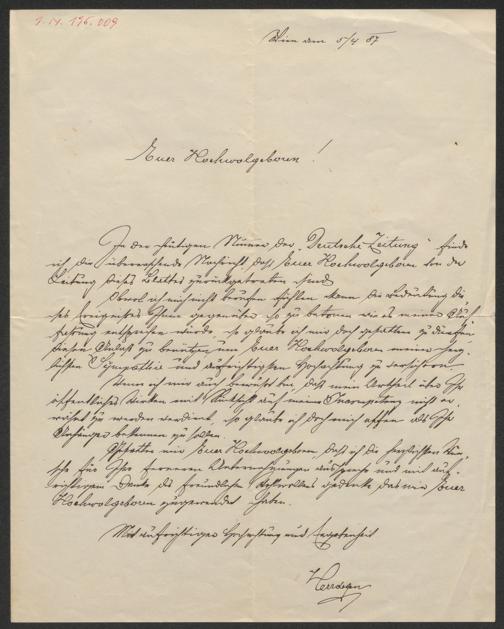 I. N. 196.009
Wien am 5/4 87
Euer Hochwolgeboren!
In der heutigen Numer der „Deutsche Zeitung“ finde
ich die überraschende Nachricht, daß Euer Hochwolgeboren von der
Leitung dieses Blattes zurückgetreten sind.
Obwol ich mich nicht berufen fühlen kann, die Bedeutung die-
ses Ereignisses Ihnen gegenüber so zu betonen wie es meiner Auf-
fassung entsprechen würde, so glaube ich mir doch gestatten zu dürfen
diesen Anlaß zu benützen um Euer Hochwolgeboren meiner herz-
lichsten Sympathie und aufrichtigsten Hochachtung zu versichern.
Wenn ich mir auch bewußt bin, daß mein Urtheil über Ihr
öffentliches Wirken mit Rücksicht auf meine Incompetenz nicht er-
wähnt zu werden verdient, so glaube ich doch mich offen als Ihr
Anhänger bekennen zu sollen.
Gestatten mir Euer Hochwolgeboren, daß ich die herzlichsten Wün-
sche für Ihre ferneren Unternehmungen ausspreche und mit auf-
richtigem Danke des freundlichen Wolwollens gedenke, das mir Euer
Hochwolgeboren zugewendet haben.
Mit aufrichtiger Hochachtung und Ergebenheit